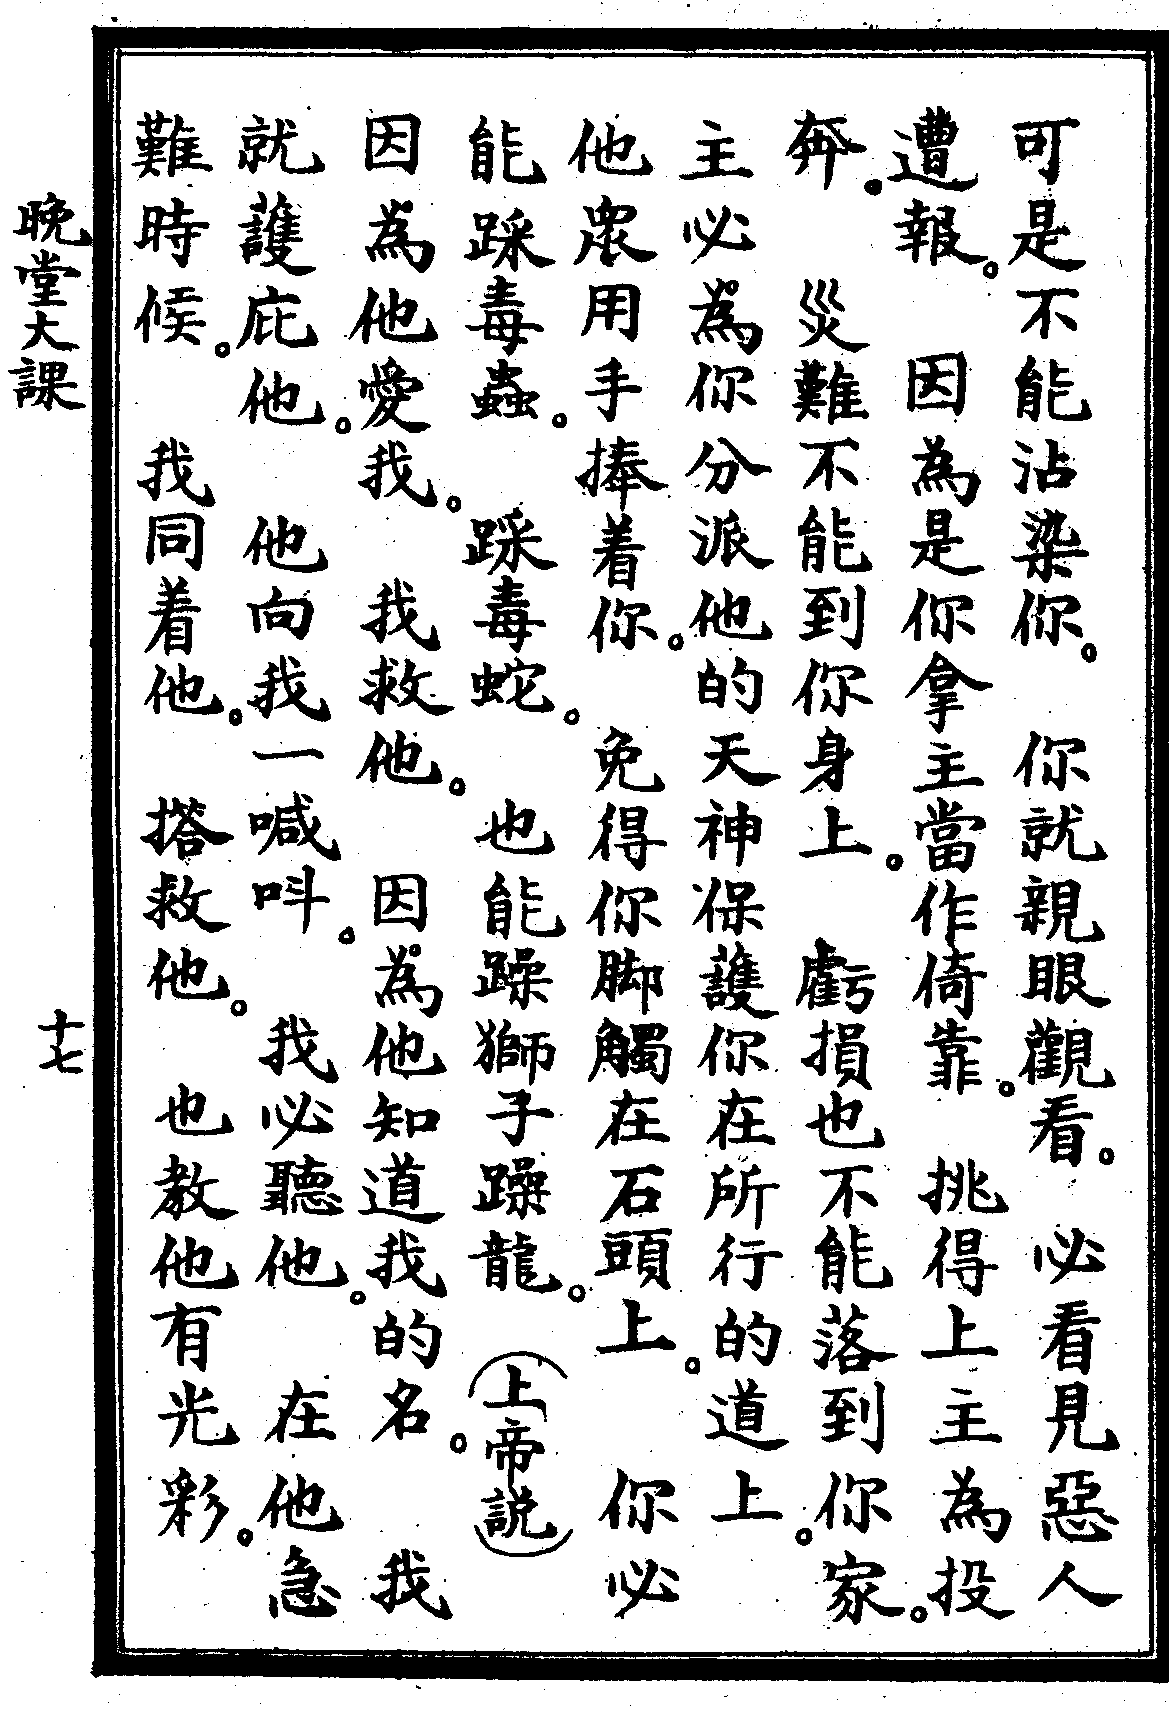 可是不能沾染你。你就親眼觀看。必看見惡人
遭報。因為是你拿主當作倚靠。挑得上主為投
奔。災難不能到你身上。虧損也不能落到你家。
主必為你分派他的天神保護你在所行的道上。
他衆用手捧着你。免得你脚觸在石頭上。你必
能踩毒蟲。踩毒蛇。也能躁獅子躁龍。(上帝説)
因為他愛我。我救他。因為他知道我的名。我
就護庇他。他向我一喊呌。我必聽他。在他急
難時候。我同着他。搭救他。也教他有光彩。
晚堂大課
十七